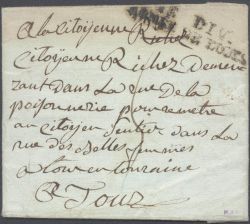 DIV.
a la Citoÿenne Richez
Citoÿenne Richez Demeu
rant dans La rue de la
poisonnerie pour remetre
au citoÿen Sentier dans La
rue des belles femmes
a tour en touraine
A Tour